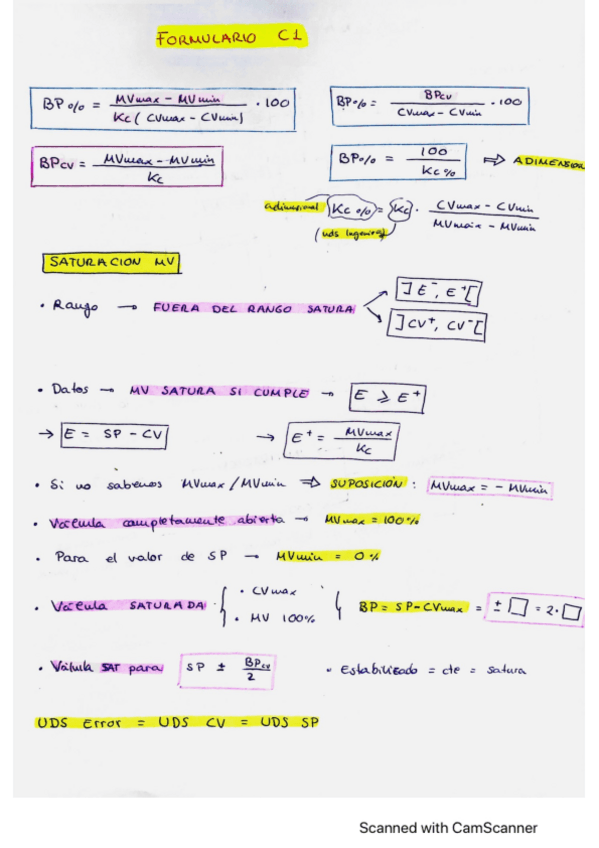 FORMULARIO C1
BP% = (MVmax - MVmin) / (Kc (CVmax - CVmin)) · 100
BP% = BPcv / (CVmax - CVmin) · 100
BPcv = (MVmax - MVmin) / Kc
BP% = 100 / Kc% ⇒ ADIMENSION
adimensional Kc% = Kc · (CVmax - CVmin) / (MVmax - MVmin)
(uds Ingenieria)
SATURACION MV
• Rango → FUERA DEL RANGO SATURA
]E⁻, E⁺[
]CV⁺, CV⁻[
• Datos → MV SATURA SI CUMPLE → E ⩾ E⁺
→ E = SP - CV → E⁺ = MVmax / Kc
• Si no sabemos MVmax/MVmin ⇒ SUPOSICIÓN : MVmax = - MVmin
• Valvula completamente abierta → MVmax = 100%
• Para el valor de SP → MVmin = 0%
• Valvula SATURADA { • CVmax
• MV 100% { BP = SP-CVmax = ± □ = 2·□
• Valvula SAT para SP ± BPcv / 2 • Estabilizado = cte = satura
UDS Error = UDS CV = UDS SP
Scanned with CamScanner